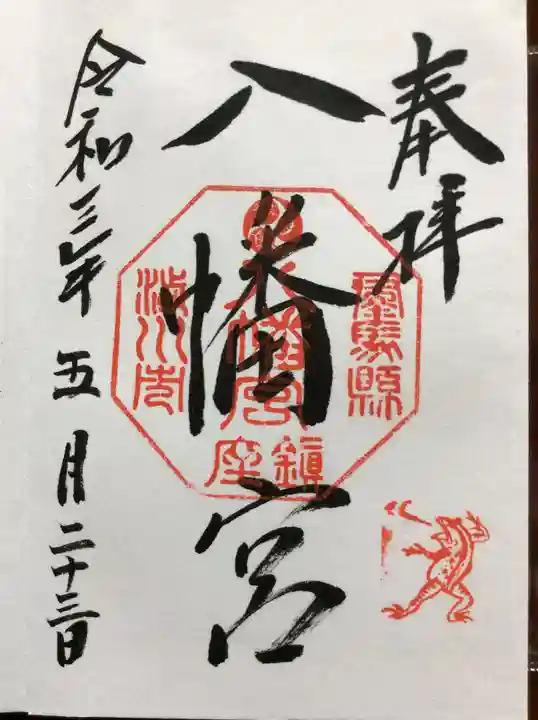 奉拝
八幡宮
群馬縣
八幡宮
鎮座
渋川市
令和三年五月二十三日